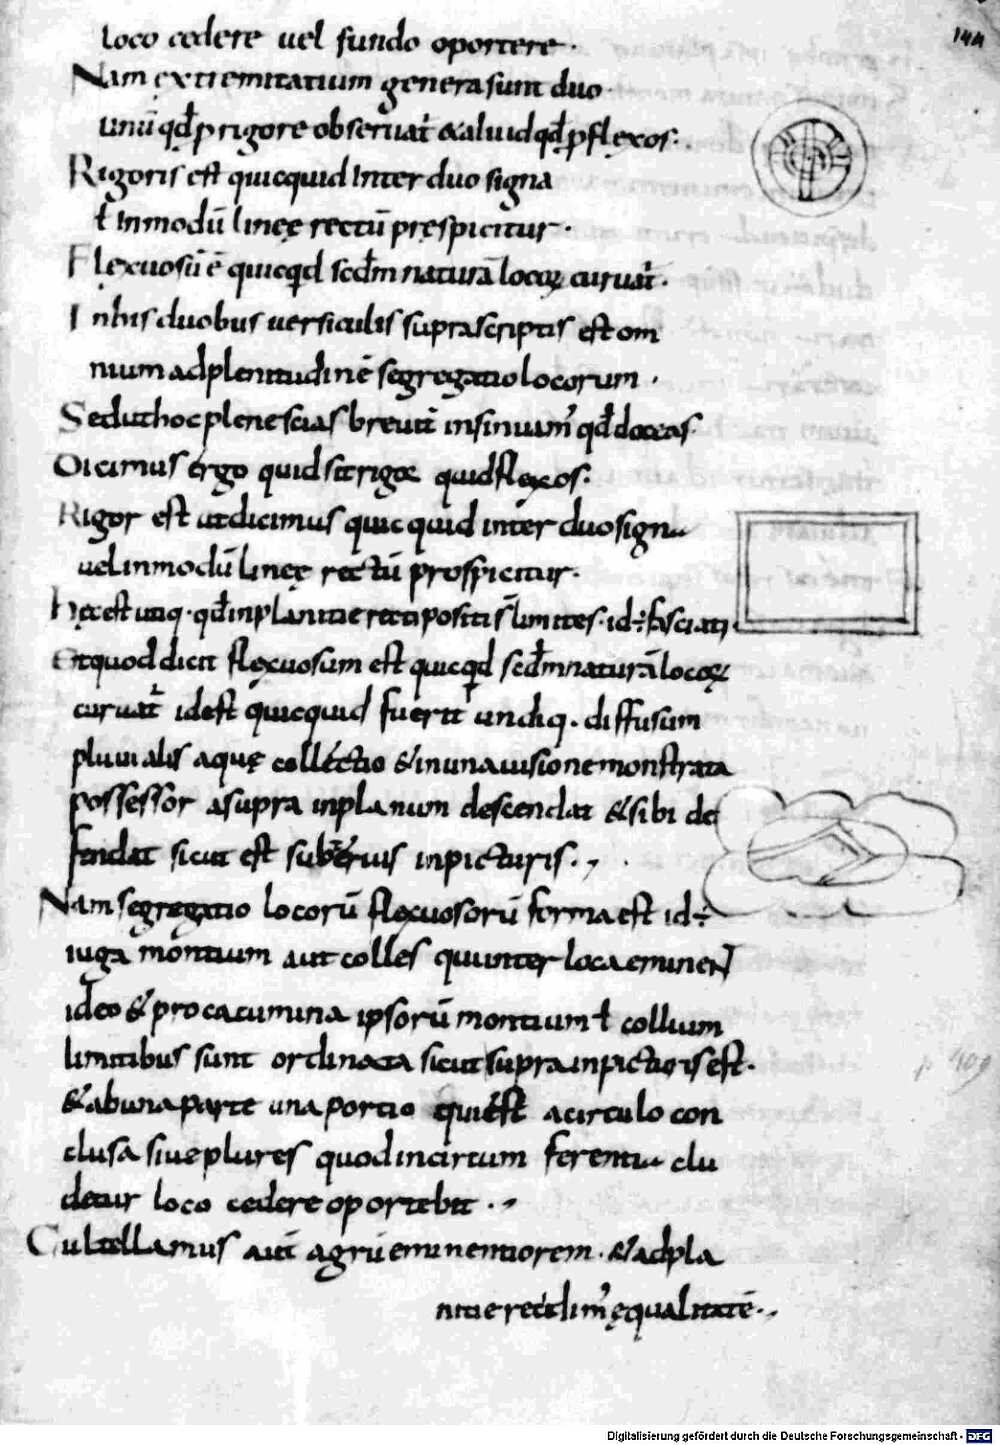 144
loco cedere uel fundo oportere·
Nam extremitatium genera sunt duo·
unū qđ p rigore obseruat᷑ & aliud qđ p flexos:·
Rigoris est quicquid Inter duo signa
ł In modū lineę rectū prespicitur·
Flexuosū ē quicq̣d scđm naturā locoꝝ curuat᷑·
In his duobus uersiculis suprascriptis est om
nium ad plenitudinē segregatio locorum·
Sed ut hoc plene scias breuit᷑ insinuam᾽ qđ doceas·
Dicimus ergo quid sit rigor quid flexos:
Rigor est ut dicimus quic quid inter duo signa
uel in modū lineę rectū prospicitur·
hęc est utiq· qđ in planitie recti positi s̄ limites· id ÷ fasciati
Et quod dicit flexuosum est quicq̣d scđm naturā locoꝝ
curuat᷑ id est quicquid fuerit undiq· diffusum
pluuialis aquę collectio & in una uisione monstrata
possessor a supra in planum descendat & sibi de
fendat sicut est in picturis·
Nam segregatio locorū flexuosorū forma est id ÷
iuga montium aut colles qui inter loca eminent
ideo & pro cacumina ipsorū montium ł collium
limitibus sunt ordinata sicut supra in pictoris est·
p 409
& ab una parte una portio qui est a circulo con
clusa siue plures quod in circum ferentia clu
detur loco cedere oportebit·
Cultellamus aut̄ agrū eminentiorem· & ad pla
nitie redigim᾽ ęqualitatē·
Digitalisierung gefördert durch die Deutsche Forschungsgemeinschaft - DFG